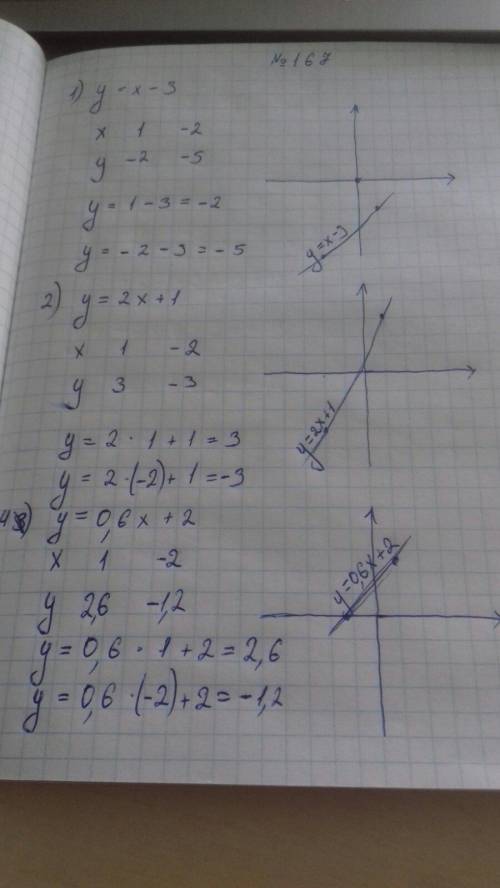 № 167
1) y = x - 3
x 1 -2
y -2 -5
y = 1 - 3 = -2
y = - 2 - 3 = - 5
y = x - 3
2) y = 2x + 1
x 1 -2
y 3 -3
y = 2 · 1 + 1 = 3
y = 2 · (-2) + 1 = -3
y = 2x + 1
4) y = 0,6x + 2
x 1 -2
y 2,6 -1,2
y = 0,6 · 1 + 2 = 2,6
y = 0,6 · (-2) + 2 = -1,2
y = 0,6x + 2